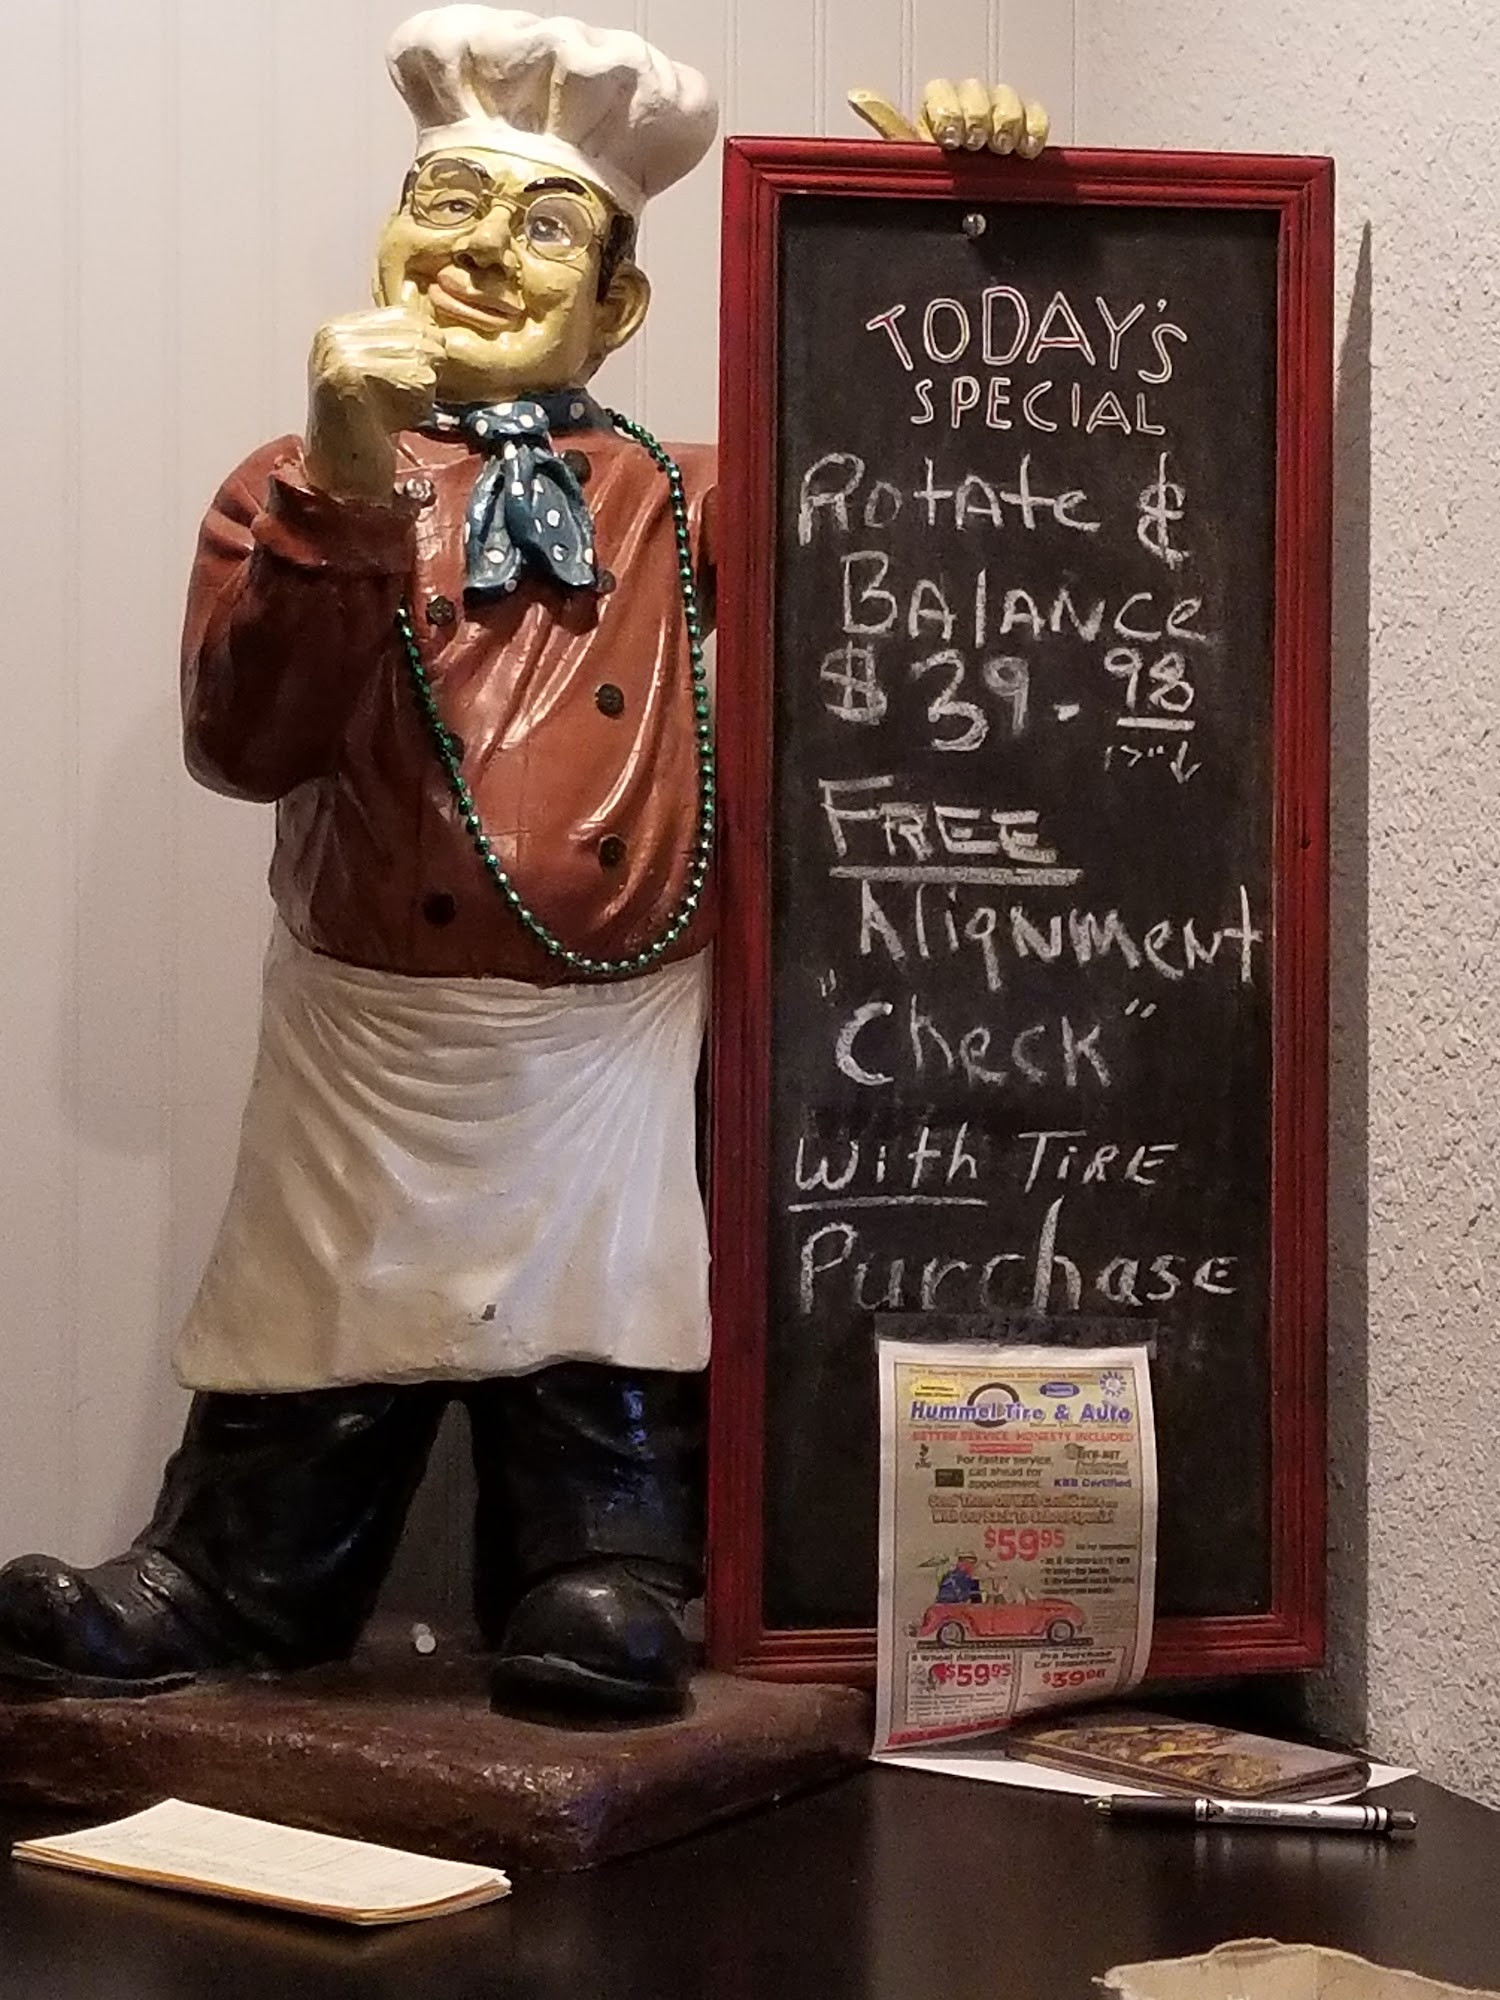 TODAY'S
SPECIAL
Rotate &
BALANCE
$39.98
17"↓
FREE
Alignment
"Check"
With TIRE
Purchase
Hummel Tire & Auto
BETTER SERVICE, HONESTY INCLUDED
For faster service,
call ahead for
appointment.
KBB Certified
Send Them Off With Confidence
With Our Back To School Special
$59.95
4 Wheel Alignment
$59.95
Pre Purchase
Car Inspections
$39.98